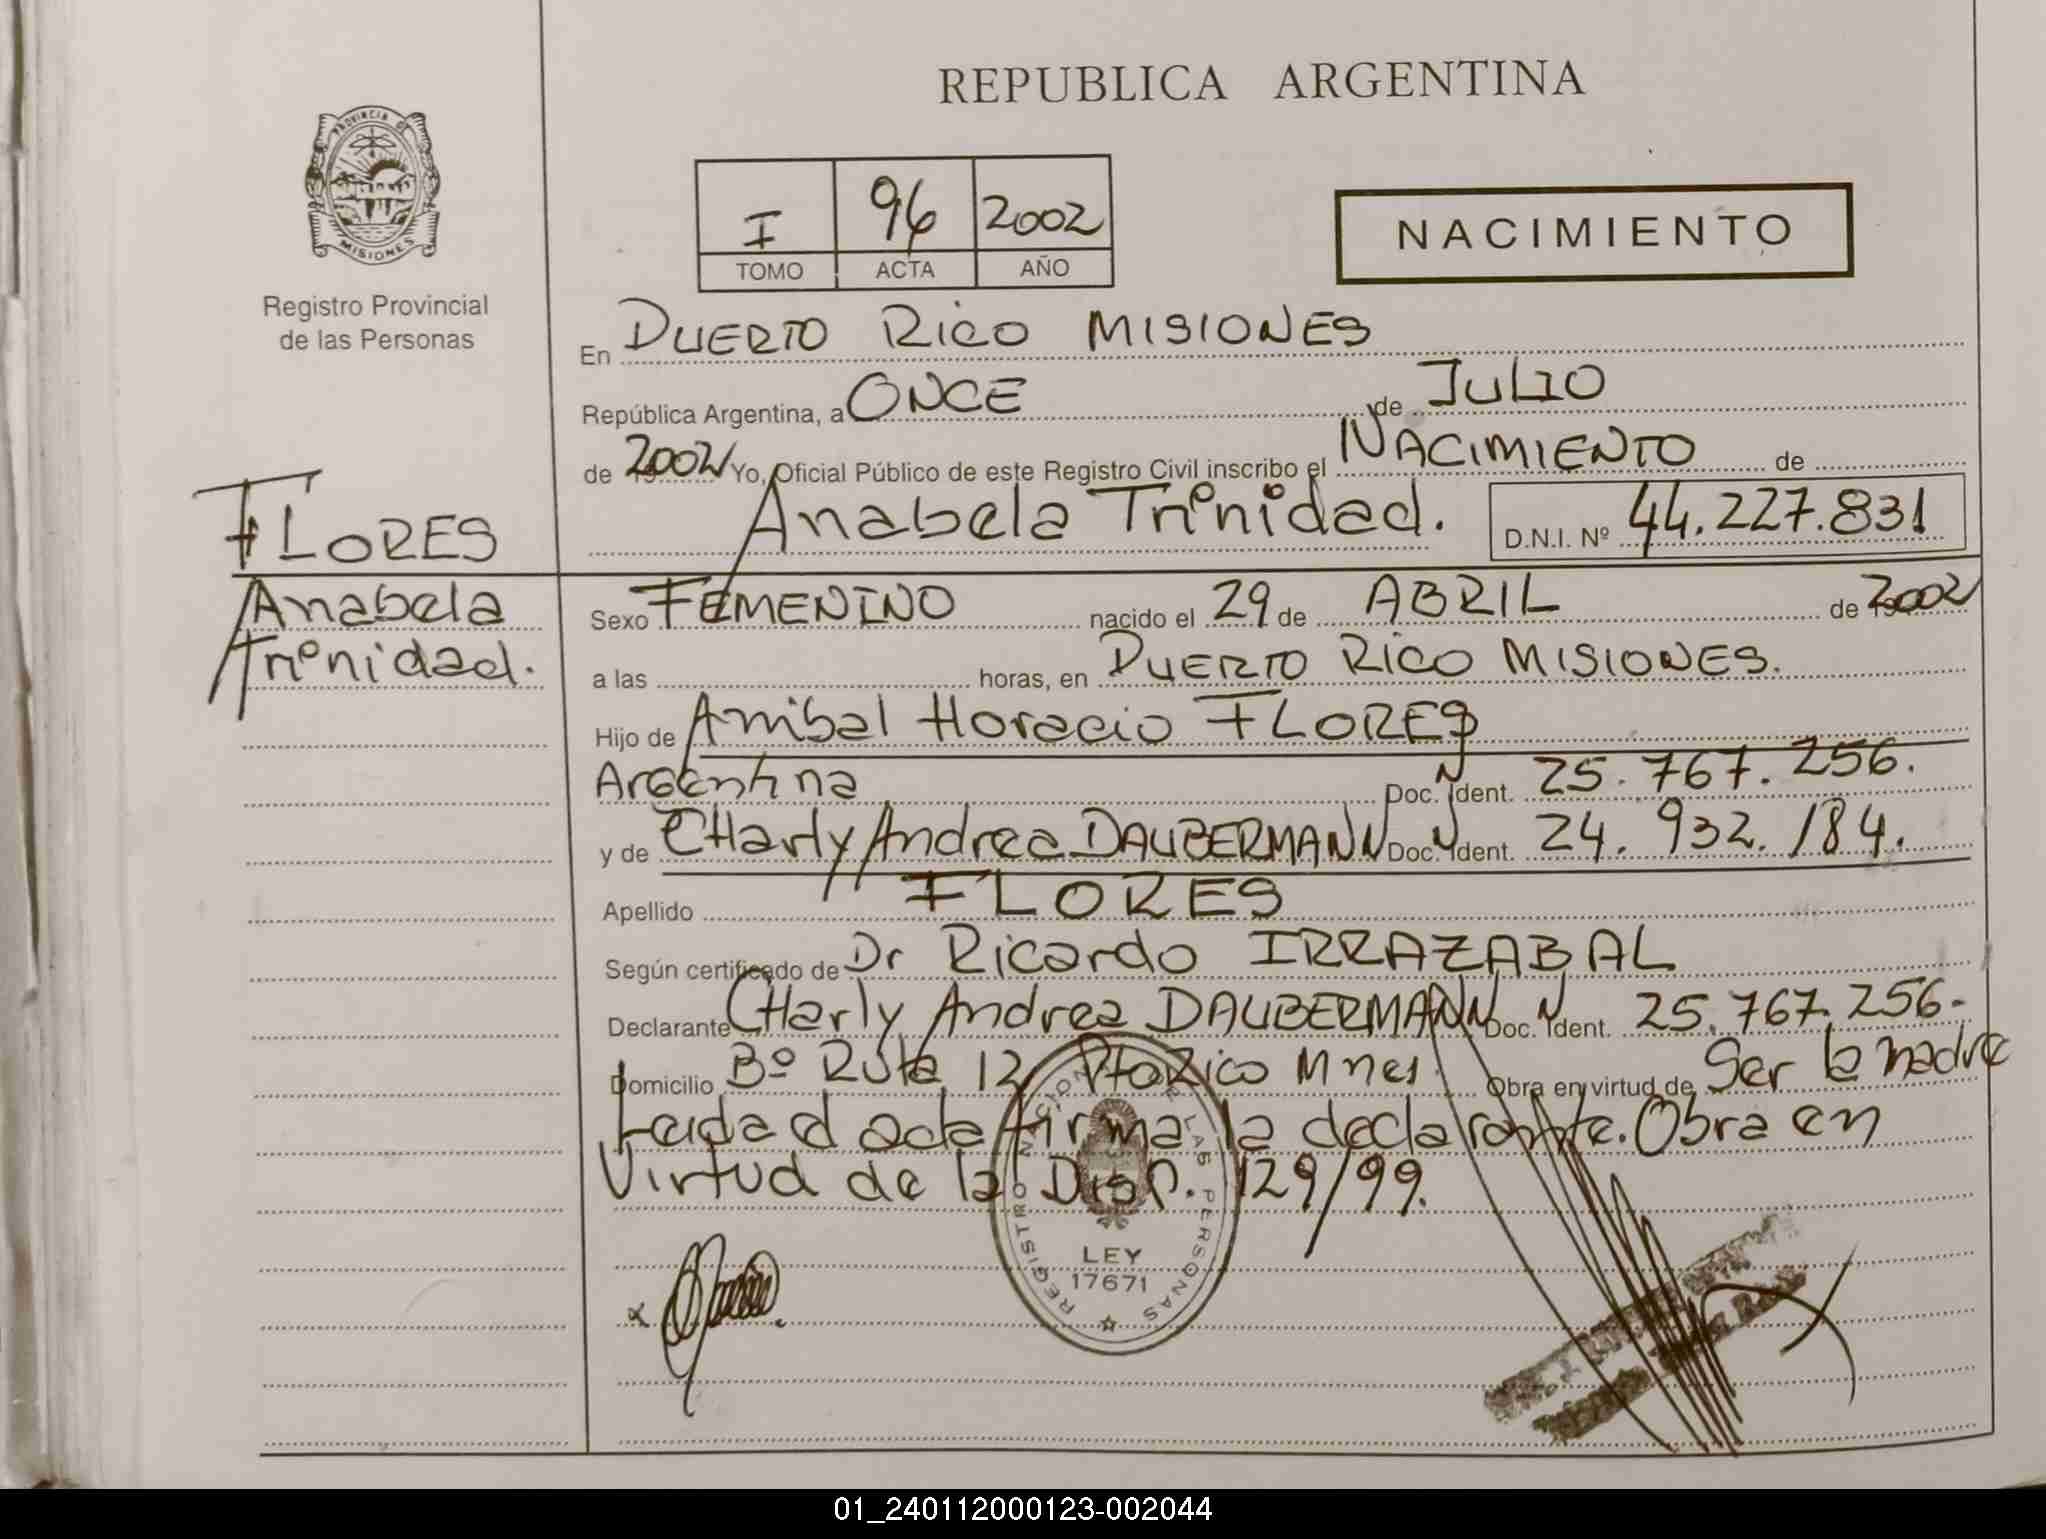 REPUBLICA ARGENTINA
PROVINCIA DE
MISIONES
Registro Provincial
de las Personas
I 96 2002
TOMO ACTA AÑO
NACIMIENTO
En PUERTO RICO MISIONES
República Argentina, a ONCE de JULIO
de 2002 Yo, Oficial Público de este Registro Civil inscribo el NACIMIENTO de
Anabela Trinidad. D.N.I. Nº 44.227.831
FLORES
Anabela
Trinidad.
Sexo FEMENINO nacido el 29 de ABRIL de 2002
a las horas, en PUERTO RICO MISIONES.
Hijo de Anibal Horacio FLORES
Argentina Doc. Ident. 25.767.256.
y de CHarly Andrea DAUBERMANN Doc. Ident. 24.932.184.
Apellido FLORES
Según certificado de Dr Ricardo IRRAZABAL
Declarante CHarly Andrea DAUBERMANN Doc. Ident. 25.767.256-
Domicilio Bº Ruta 12 Pto Rico Mnes. Obra en virtud de Ser la madre
Leida el acta firma la declarante. Obra en
Virtud de la Disp. 129/99.
REGISTRO NACIONAL DE LAS PERSONAS
LEY
17671
01_240112000123-002044